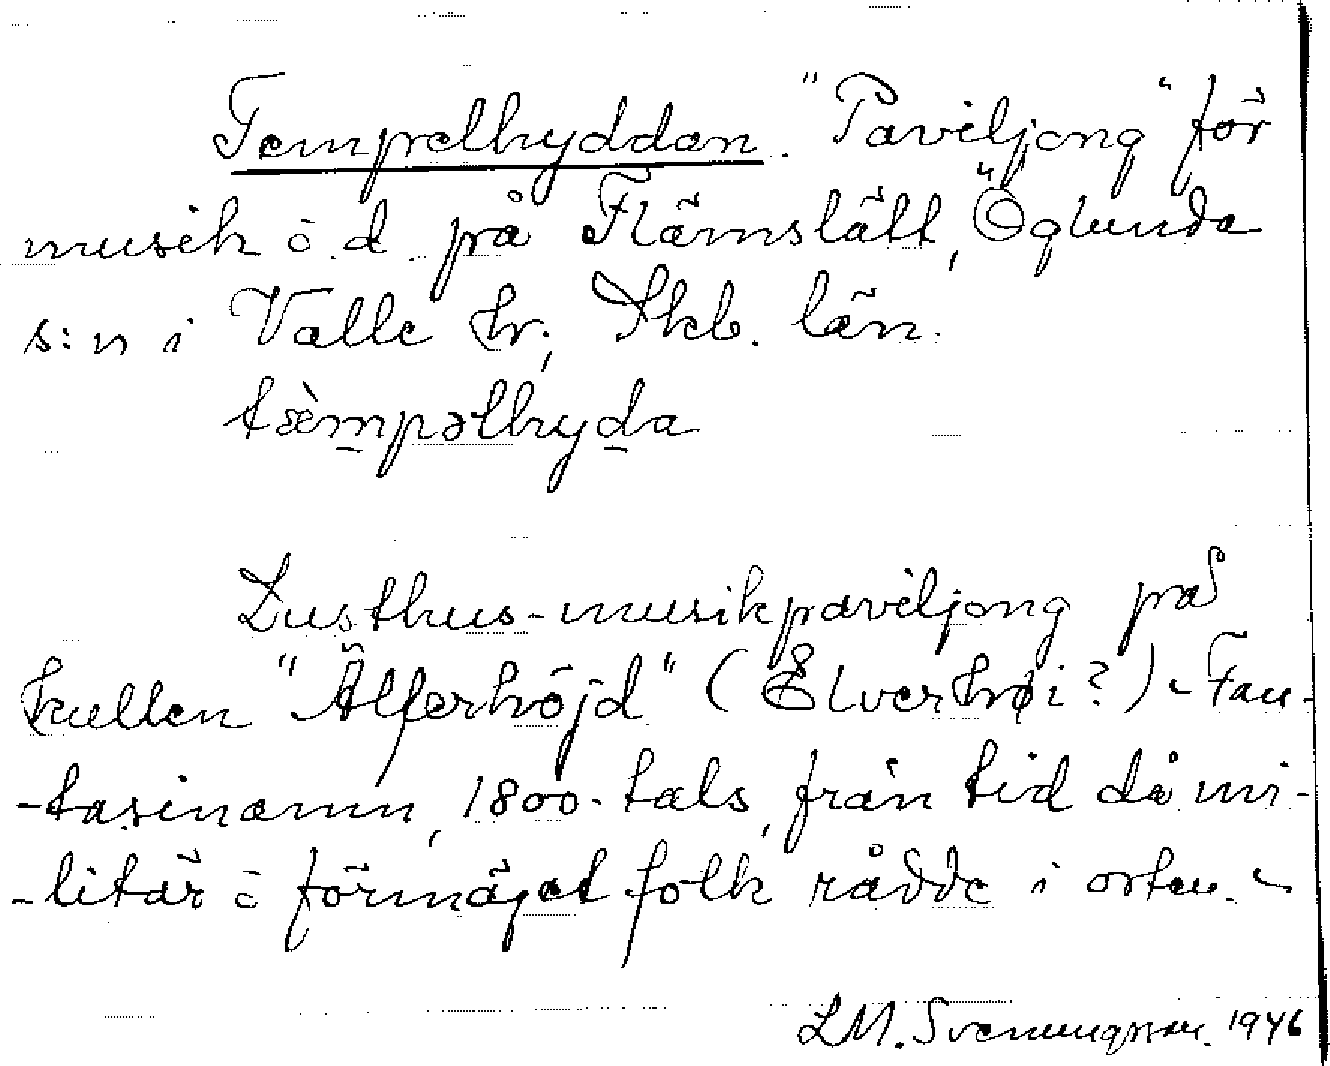 Tempelhyddan. "Paviljong" för
musik ō d på Flämslätt, Öglunda
s:n i Valle hr; Skb. län.
tæ̀mpəlhyda
Lusthus-musikpaviljong på
kullen "Älferhöjd" (Elverhøi?) - Fan-
-tasinamn, 1800-tals, från tid då mi-
-litär ō förmöget folk rådde i orten. -
LM. Svenungsson. 1946